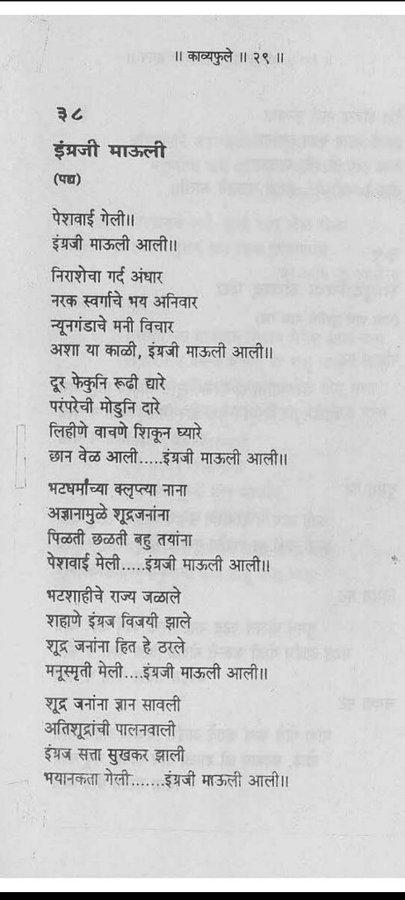 ॥ काव्यफुले ॥ २९ ॥
३८
इंग्रजी माऊली
(पद्य)
पेशवाई गेली॥
इंग्रजी माऊली आली॥
निराशेचा गर्द अंधार
नरक स्वर्गाचे भय अनिवार
न्यूनगंडाचे मनी विचार
अशा या काळी, इंग्रजी माऊली आली॥
दूर फेकुनि रूढी द्यारे
परंपरेची मोडुनि दारे
लिहीणे वाचणे शिकून घ्यारे
छान वेळ आली.....इंग्रजी माऊली आली॥
भटधर्मांच्या क्लृप्त्या नाना
अज्ञानामुळे शूद्रजनांना
पिळती छळती बहु तयांना
पेशवाई मेली.....इंग्रजी माऊली आली॥
भटशाहीचे राज्य जळाले
शहाणे इंग्रज विजयी झाले
शूद्र जनांना हित हे ठरले
मनूस्मृती मेली....इंग्रजी माऊली आली॥
शूद्र जनांना ज्ञान सावली
अतिशूद्रांची पालनवाली
इंग्रज सत्ता सुखकर झाली
भयानकता गेली.......इंग्रजी माऊली आली॥